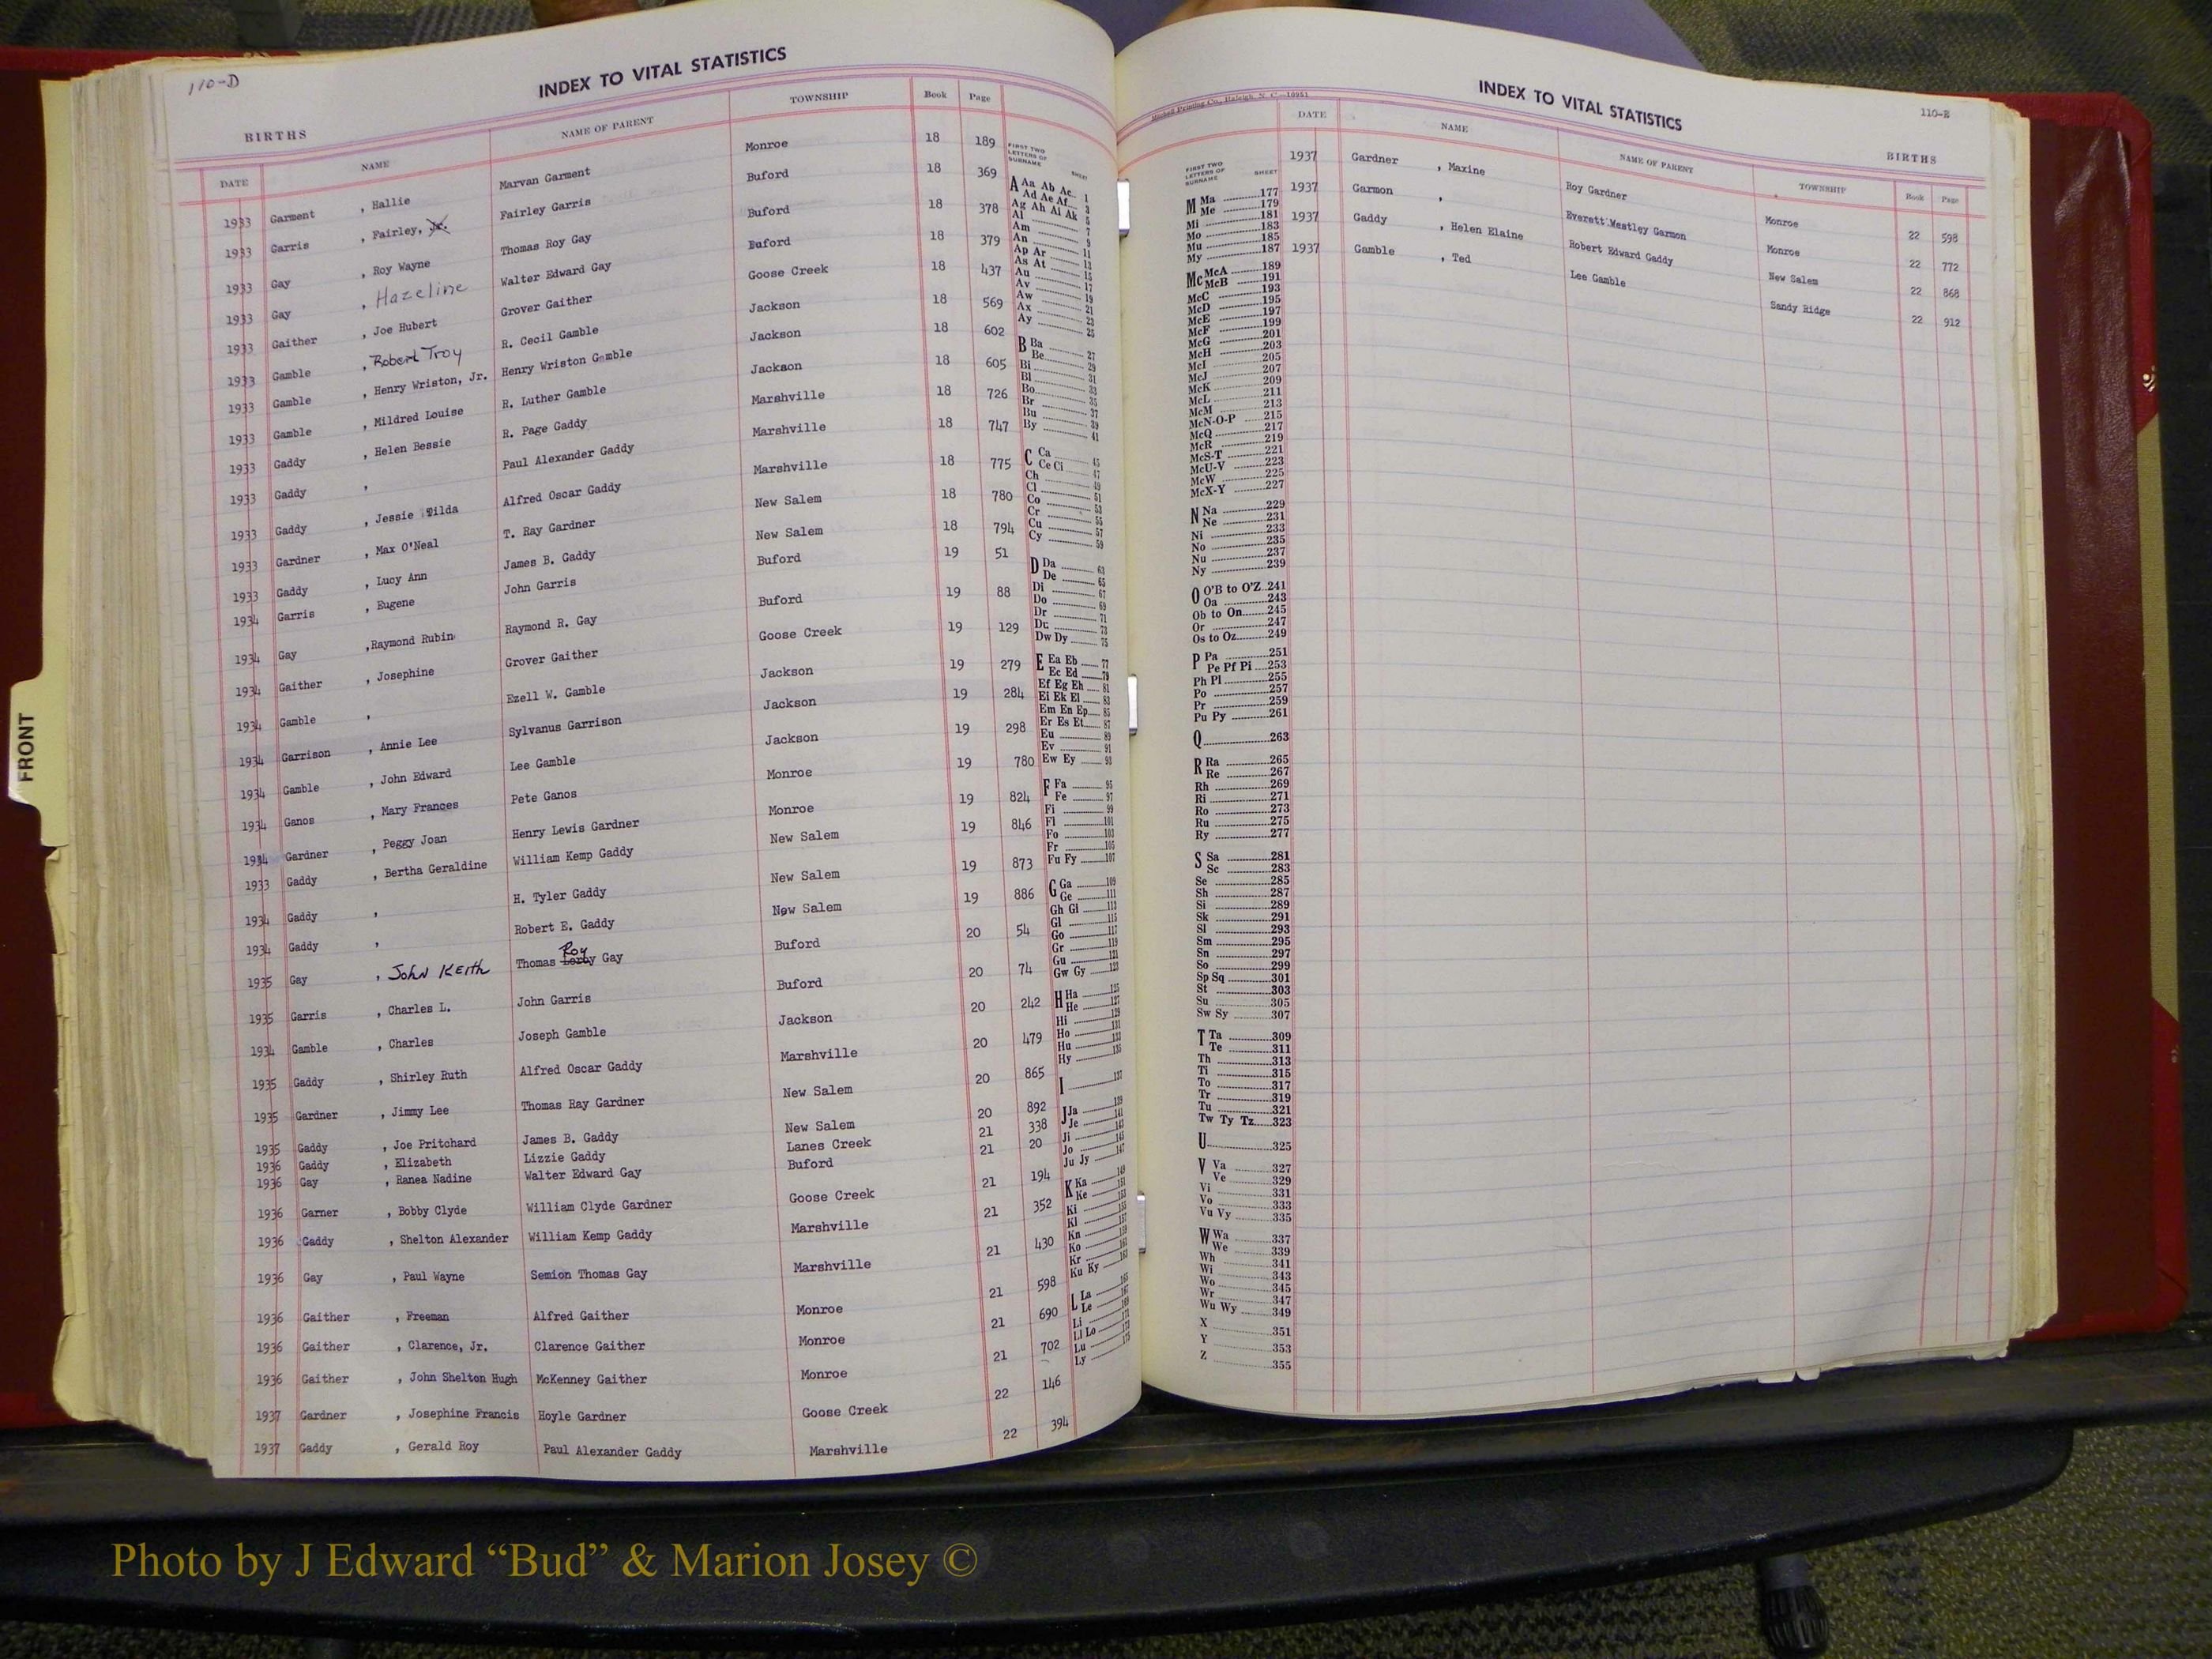 110-D
INDEX TO VITAL STATISTICS
BIRTHS
DATE NAME NAME OF PARENT TOWNSHIP Book Page
1933 Garment , Hallie Marvan Garment Monroe 18 189
1933 Garris , Fairley, Jr. Fairley Garris Buford 18 369
1933 Gay , Roy Wayne Thomas Roy Gay Buford 18 378
1933 Gay , Hazeline Walter Edward Gay Buford 18 379
1933 Gaither , Joe Hubert Grover Gaither Goose Creek 18 437
1933 Gamble , Robert Troy R. Cecil Gamble Jackson 18 569
1933 Gamble , Henry Wriston, Jr. Henry Wriston Gamble Jackson 18 602
1933 Gamble , Mildred Louise R. Luther Gamble Jackson 18 605
1933 Gaddy , Helen Bessie R. Page Gaddy Marshville 18 726
1933 Gaddy , Paul Alexander Gaddy Marshville 18 747
1933 Gaddy , Jessie Wilda Alfred Oscar Gaddy Marshville 18 775
1933 Gardner , Max O'Neal T. Ray Gardner New Salem 18 780
1933 Gaddy , Lucy Ann James B. Gaddy New Salem 18 794
1934 Garris , Eugene John Garris Buford 19 51
1934 Gay ,Raymond Rubin Raymond R. Gay Buford 19 88
1934 Gaither , Josephine Grover Gaither Goose Creek 19 129
1934 Gamble , Ezell W. Gamble Jackson 19 279
1934 Garrison , Annie Lee Sylvanus Garrison Jackson 19 284
1934 Gamble , John Edward Lee Gamble Jackson 19 298
1934 Ganos , Mary Frances Pete Ganos Monroe 19 780
1934 Gardner , Peggy Joan Henry Lewis Gardner Monroe 19 824
1933 Gaddy , Bertha Geraldine William Kemp Gaddy New Salem 19 846
1934 Gaddy , H. Tyler Gaddy New Salem 19 873
1934 Gaddy , Robert E. Gaddy New Salem 19 886
1935 Gay , John Keith Thomas Leroy Roy Gay Buford 20 54
1935 Garris , Charles L. John Garris Buford 20 74
1934 Gamble , Charles Joseph Gamble Jackson 20 242
1935 Gaddy , Shirley Ruth Alfred Oscar Gaddy Marshville 20 479
1935 Gardner , Jimmy Lee Thomas Ray Gardner New Salem 20 865
1935 Gaddy , Joe Pritchard James B. Gaddy New Salem 20 892
1936 Gaddy , Elizabeth Lizzie Gaddy Lanes Creek 21 338
1936 Gay , Ranea Nadine Walter Edward Gay Buford 21 20
1936 Garner , Bobby Clyde William Clyde Gardner Goose Creek 21 194
1936 Gaddy , Shelton Alexander William Kemp Gaddy Marshville 21 352
1936 Gay , Paul Wayne Semion Thomas Gay Marshville 21 430
1936 Gaither , Freeman Alfred Gaither Monroe 21 598
1936 Gaither , Clarence, Jr. Clarence Gaither Monroe 21 690
1936 Gaither , John Shelton Hugh McKenney Gaither Monroe 21 702
1937 Gardner , Josephine Francis Hoyle Gardner Goose Creek 22 146
1937 Gaddy , Gerald Roy Paul Alexander Gaddy Marshville 22 394
FIRST TWO
LETTERS OF
SURNAME SHEET
A Aa Ab Ac 1
Ad Ae Af 3
Ag Ah Ai Ak 5
Al 7
Am 9
An 11
Ap Ar 13
As At 15
Au 17
Av 19
Aw 21
Ax 23
Ay 25
B Ba 27
Be 29
Bi 31
Bl 33
Bo 35
Br 37
Bu 39
By 41
C Ca 45
Ce Ci 47
Ch 49
Cl 51
Co 53
Cr 55
Cu 57
Cy 59
D Da 63
De 65
Di 67
Do 69
Dr 71
Du 73
Dw Dy 75
E Ea Eb 77
Ec Ed 79
Ef Eg Eh 81
Ei Ek El 83
Em En Ep 85
Er Es Et 87
Eu 89
Ev 91
Ew Ey 93
F Fa 95
Fe 97
Fi 99
Fl 101
Fo 103
Fr 105
Fu Fy 107
G Ga 109
Ge 111
Gh Gi 113
Gl 115
Go 117
Gr 119
Gu 121
Gw Gy 123
H Ha 125
He 127
Hi 129
Ho 131
Hu 133
Hy 135
I 137
J Ja 139
Je 141
Ji 143
Jo 145
Ju Jy 147
K Ka 149
Ke 151
Ki 153
Kl 155
Kn 157
Ko 159
Kr 161
Ku Ky 163
L La 165
Le 167
Li 169
Ll Lo 171
Lu 173
Ly 175
Mitchell Printing Co., Raleigh, N. C.—10951
INDEX TO VITAL STATISTICS
110-E
BIRTHS
DATE NAME NAME OF PARENT TOWNSHIP Book Page
1937 Gardner , Maxine Roy Gardner Monroe 22 598
1937 Garmon , Everett Westley Garmon Monroe 22 772
1937 Gaddy , Helen Elaine Robert Edward Gaddy New Salem 22 868
1937 Gamble , Ted Lee Gamble Sandy Ridge 22 912
FIRST TWO
LETTERS OF
SURNAME SHEET
M Ma 177
Me 179
Mi 181
Mo 183
Mu 185
My 187
Mc McA 189
McB 191
McC 193
McD 195
McE 197
McF 199
McG 201
McH 203
McI 205
McJ 207
McK 209
McL 211
McM 213
McN-O-P 215
McQ 217
McR 219
McS-T 221
McU-V 223
McW 225
McX-Y 227
N Na 229
Ne 231
Ni 233
No 235
Nu 237
Ny 239
O O'B to O'Z 241
Oa 243
Ob to On 245
Or 247
Os to Oz 249
P Pa 251
Pe Pf Pi 253
Ph Pl 255
Po 257
Pr 259
Pu Py 261
Q 263
R Ra 265
Re 267
Rh 269
Ri 271
Ro 273
Ru 275
Ry 277
S Sa 281
Sc 283
Se 285
Sh 287
Si 289
Sk 291
Sl 293
Sm 295
Sn 297
So 299
Sp Sq 301
St 303
Su 305
Sw Sy 307
T Ta 309
Te 311
Th 313
Ti 315
To 317
Tr 319
Tu 321
Tw Ty Tz 323
U 325
V Va 327
Ve 329
Vi 331
Vo 333
Vu Vy 335
W Wa 337
We 339
Wh 341
Wi 343
Wo 345
Wr 347
Wu Wy 349
X 351
Y 353
Z 355
FRONT
Photo by J Edward “Bud” & Marion Josey ©